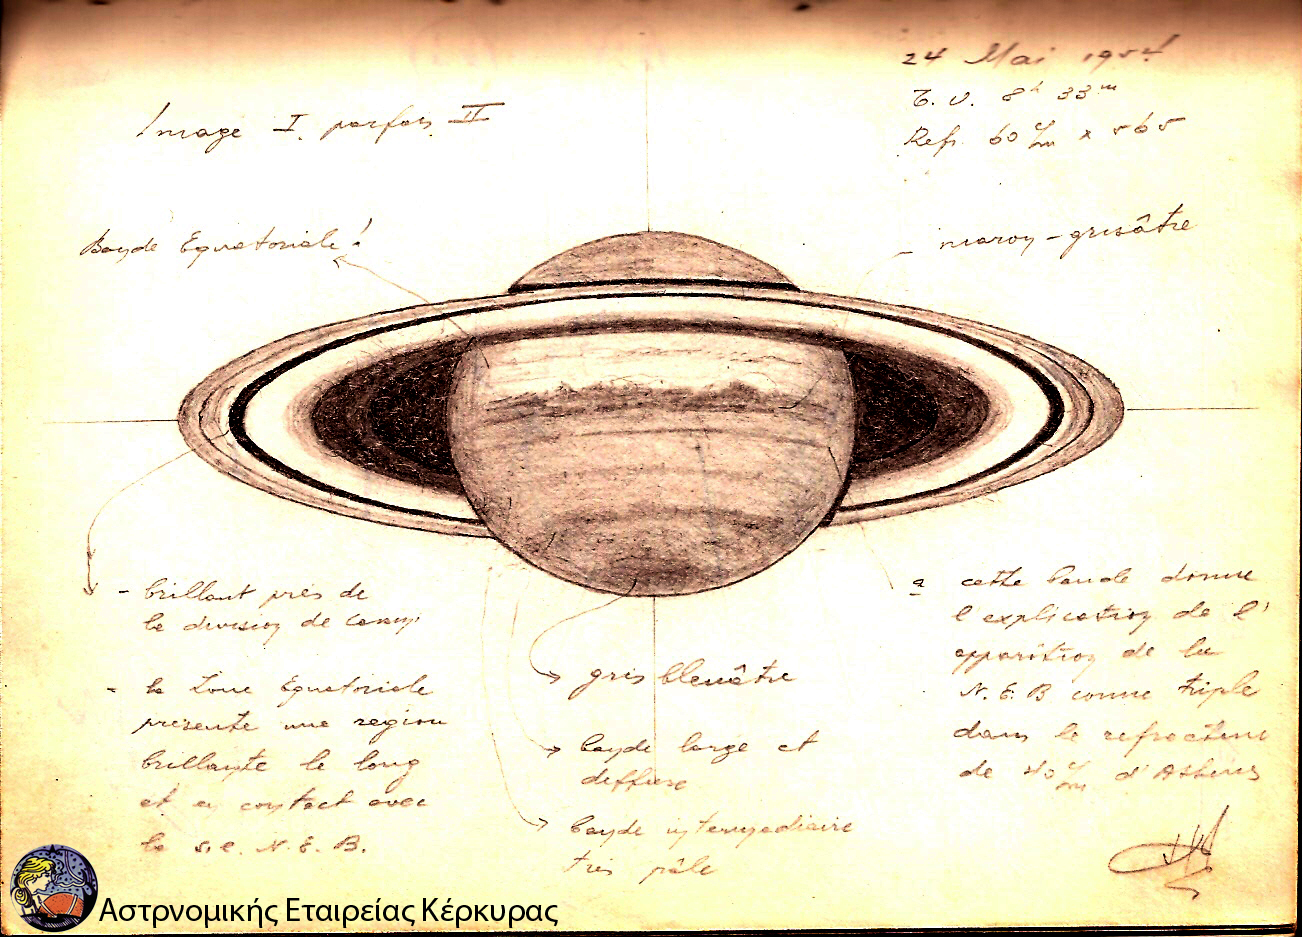 24 Mai 1954
T. U. 8h 33m
Image I, parfois II
Refr. 60 c/m x 565
Bande Equatoriale!
maron-grisâtre
- brillant près de
la division de Camp.
- la Zone Equatoriale
présente une region
brillante le long
et en contact avec
la s.c. N.E.B.
gris bleuâtre
bande large et
diffuse
bande intermediaire
très pâle
a cette bande donne
l'explication de l'
apparition de la
N.E.B comme triple
dans le refracteur
de 40 c/m d'Athènes
Αστρνομικής Εταιρείας Κέρκυρας